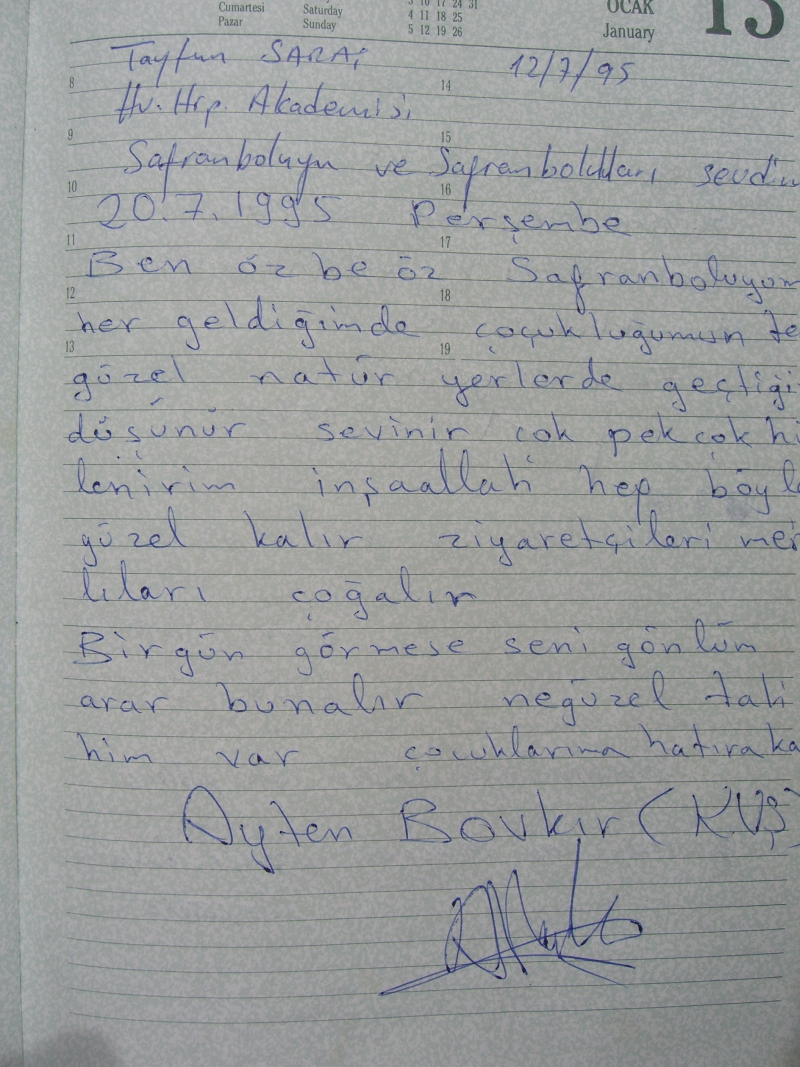 Cumartesi Saturday
Pazar Sunday
3 10 17 24 31
4 11 18 25
5 12 19 26
OCAK
January
13
Tayfun 12/7/95
8 14
Hv. Hrp. Akademisi
9 15
Safranboluyu ve sevdim
10 16
20.7.1995 Perşembe
11 17
Ben öz be öz Safranboluyum
12 18
her geldiğimde çoçukluğumun te
13 19
güzel natür yerlerde geçtiği
düşünür sevinir çok pek çok hi
lenirim inşaallah hep böyle
güzel kalır ziyaretçileri mer
lıları çoğalır
Birgün görmese seni gönlüm
arar bunalır negüzel tali
him var çocuklarıma hatıra ka
Ayten Bovkır (KUŞ)